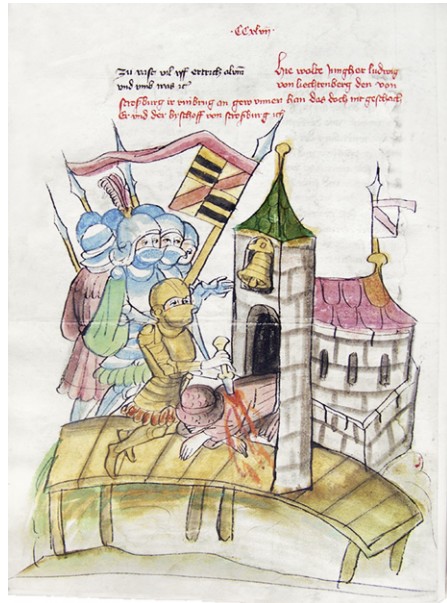 ·CCxlvii·
zu rast vil vff ertrich
vnd vmb was ir
Hie wolte Jungher ludwig
von liechtenberg den von
stroßburg ir vinbrug an gewinnen kan das doch nit geschach
Er vnd der byschoff von stroßburg ich